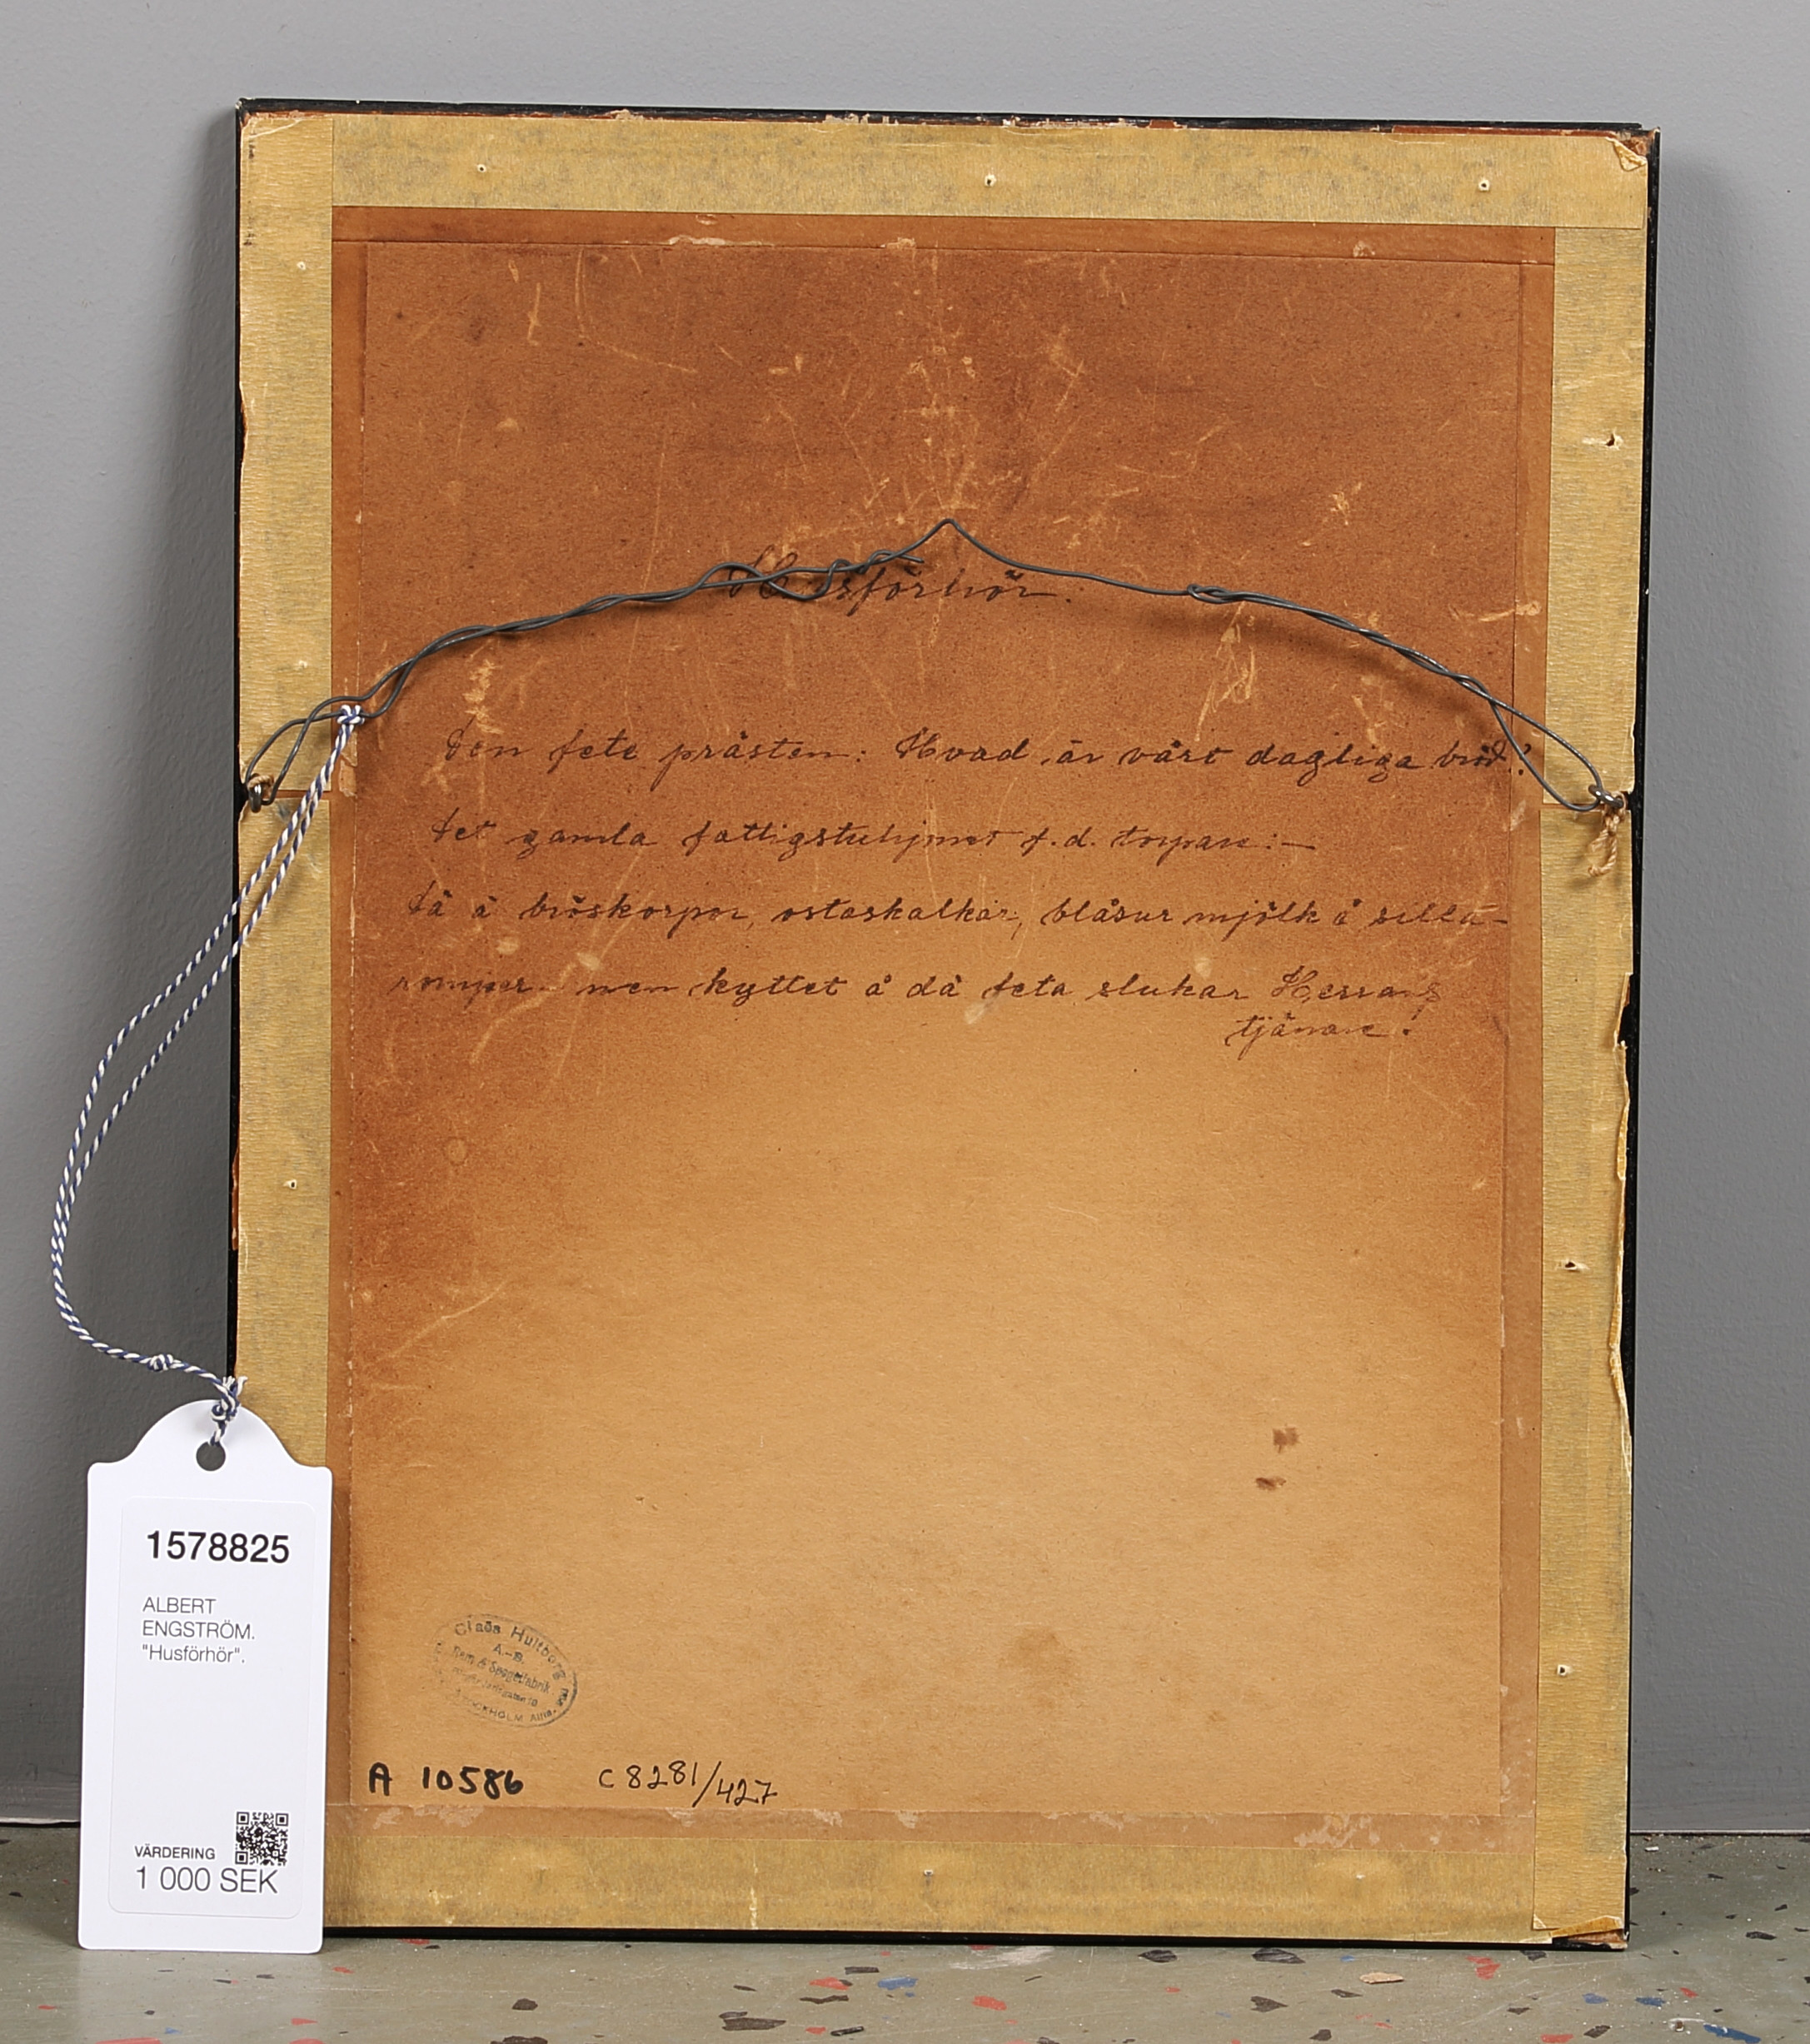 Husförhör.
Den fete prästen: Hvad är vårt dagliga bröd?
Det gamla fattigstuhjonet f.d. torpare: —
Dä ä bröskorpor, ostaskalkar, blåsur mjölk å silla-
rompor. men kyttet å dä feta slukar Herrans
tjänare!
Claës Hultberg
A.-B.
Ram & Spegelfabrik
STOCKHOLM
A 10586 C 8281/427
1578825
ALBERT
ENGSTRÖM.
"Husförhör".
VÄRDERING
1 000 SEK